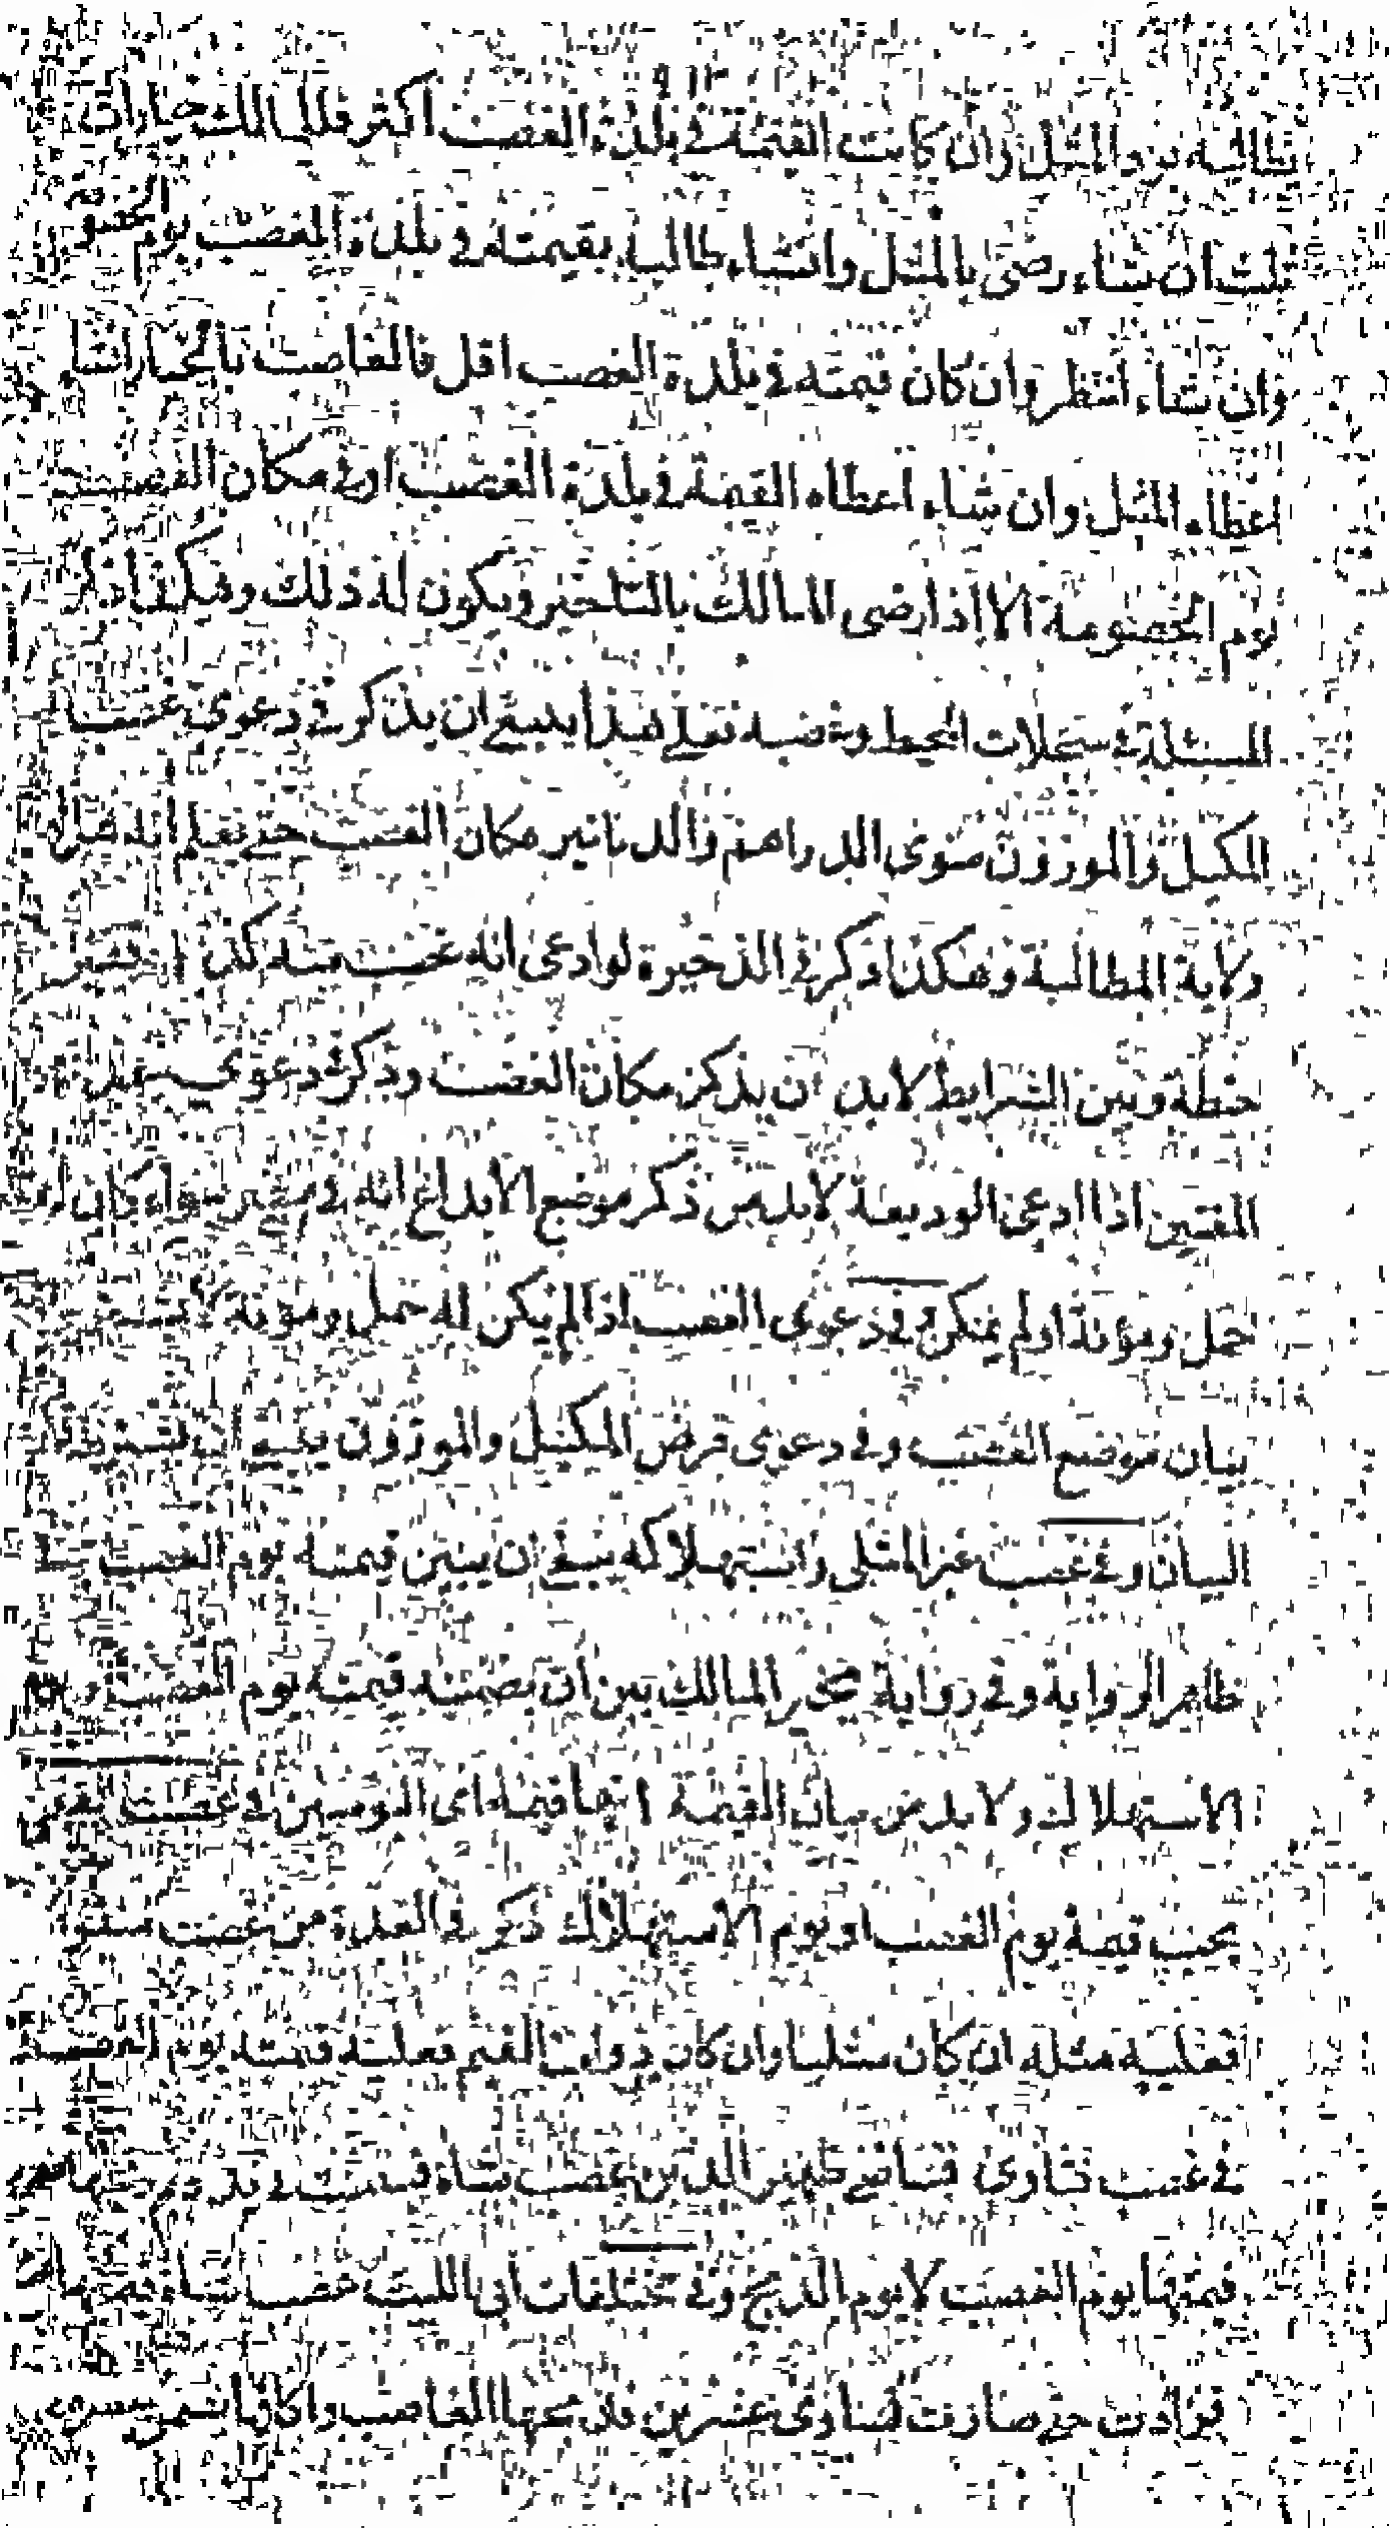 يرد المثل وان كانت القيمة في بلدة الغصب اكثر فللمالك خيارات
ثلث ان شاء رضى بالمثل وان شاء طالبه بقيمته في بلدة الغصب يوم الخصومة
وان شاء انتظر وان كان قيمته في بلدة الغصب اقل فالغاصب بالخيار ان شا
اعطاه المثل وان شاء اعطاه القيمة في بلدة الغصب او في مكان الغصب
يوم الخصومة الا اذا رضى المالك بالتاخير ويكون له ذلك وهكذا ذكر
المسئلة في سجلات المحيط فعلى هذا ينبغي ان يذكر في دعوى غصب
المكيل والموزون سوى الدراهم والدنانير مكان الغصب حتى يعلم انه هل له
ولاية المطالبة وهكذا ذكر في الذخيرة لو ادعى انه غصب منه كذا قفيز
حنطة وبين الشرايط لابد ان يذكر مكان الغصب وذكر في دعوى
المغنين اذا ادعى الوديعة لابد من ذكر موضع الايداع انه في سواء كان له
حمل ومؤنة او لم يكن وفي دعوى الغصب اذا لم يكن له حمل ومؤنة
بيان موضع الغصب وفي دعوى قرض المكيل والموزون
البيان وفي غصب غير المثلى واستهلاكه ينبغي ان يبين قيمته يوم الغصب
ظاهر الرواية وفي رواية يخير المالك بين ان يضمنه قيمته يوم الغصب
الاستهلاك ولابد من بيان القيمة انها قيمة اى اليومين في غصب
يجب قيمة يوم الغصب او يوم الاستهلاك ذكر في العدة من غصب
فعليه مثله ان كان مثليا وان كان ذوات القيم فعليه قيمته يوم
في غصب فتاوى ظهير الدين غصب شاة فسمنت في يده ثم ذبحها
قيمتها يوم الغصب لا يوم الذبح وفي مختلفات ابى الليث غصب شاة
فزادت حتى صارت تساوى عشرين فذبحها الغاصب